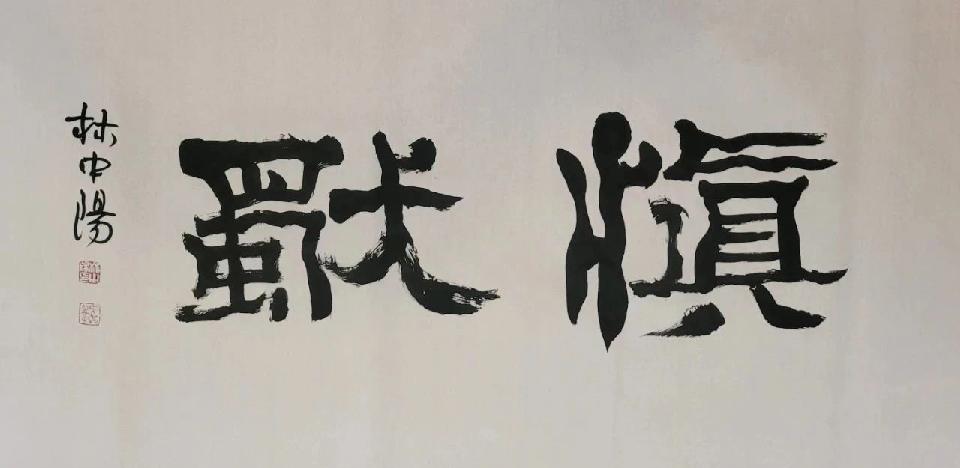 愼獨
林中陽